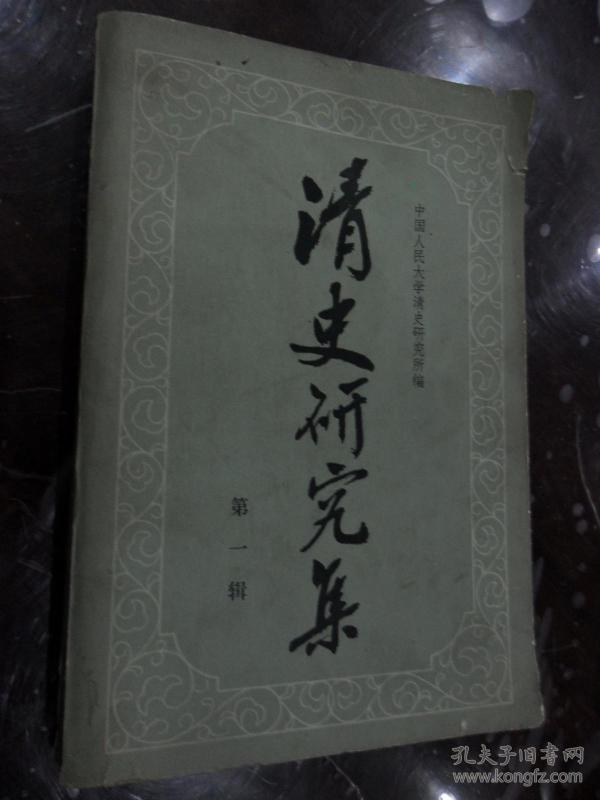 中国人民大学清史研究所编
清史研究集
第一辑
孔夫子旧书网
www.kongfz.com